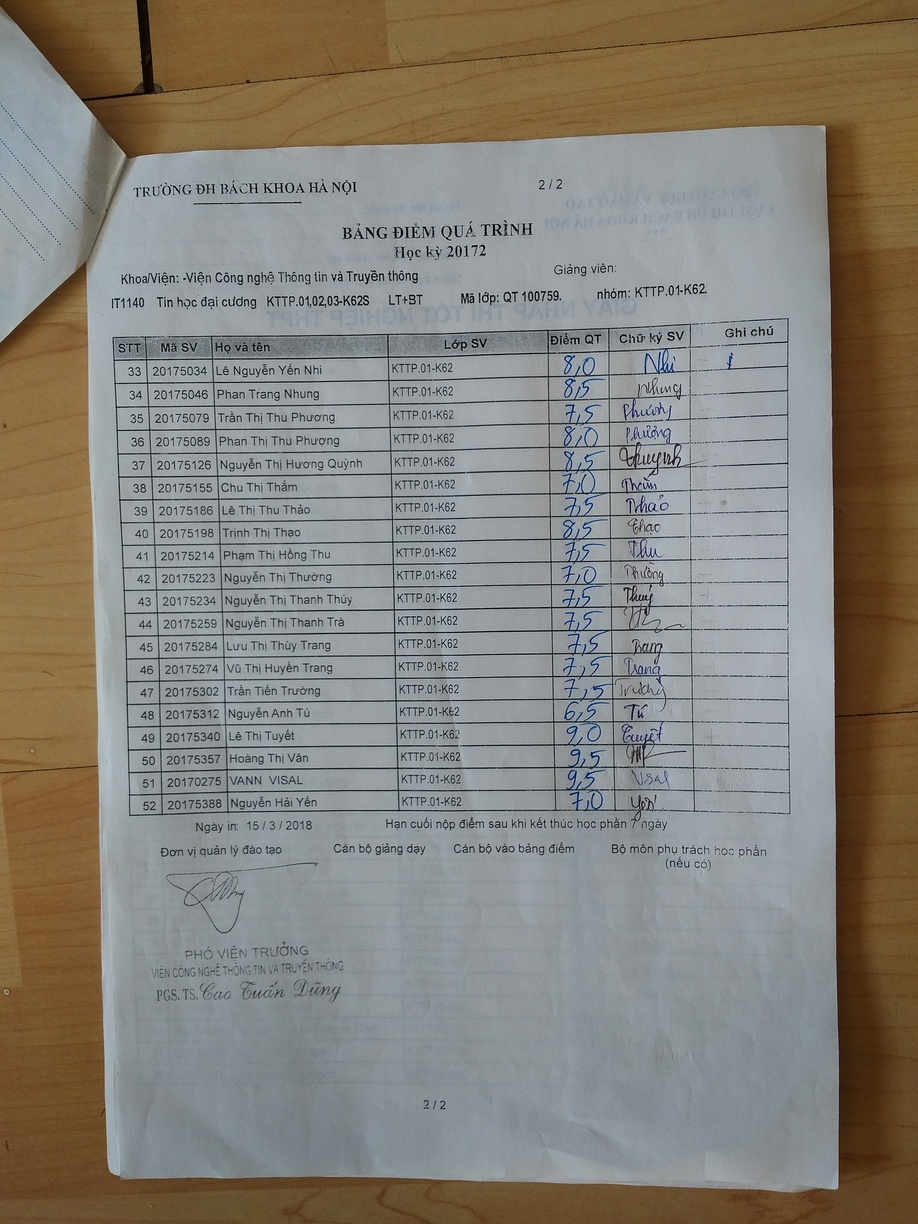 TRƯỜNG ĐH BÁCH KHOA HÀ NỘI 2 / 2
BẢNG ĐIỂM QUÁ TRÌNH
Học kỳ 20172
Khoa/Viện: -Viện Công nghệ Thông tin và Truyền thông Giảng viên:
IT1140 Tin học đại cương KTTP.01,02,03-K62S LT+BT Mã lớp: QT 100759. nhóm: KTTP.01-K62.
STT Mã SV Họ và tên Lớp SV Điểm QT Chữ ký SV Ghi chú
33 20175034 Lê Nguyễn Yến Nhi KTTP.01-K62 8,0 Nhi
34 20175046 Phan Trang Nhung KTTP.01-K62 8,5 Nhung
35 20175079 Trần Thị Thu Phương KTTP.01-K62 7,5 Phương
36 20175089 Phan Thị Thu Phượng KTTP.01-K62 8,0 Phượng
37 20175126 Nguyễn Thị Hương Quỳnh KTTP.01-K62 8,5 Quỳnh
38 20175155 Chu Thị Thắm KTTP.01-K62 7,0 Thắm
39 20175186 Lê Thị Thu Thảo KTTP.01-K62 7,5 Thảo
40 20175198 Trịnh Thị Thạo KTTP.01-K62 8,5 Thạo
41 20175214 Phạm Thị Hồng Thu KTTP.01-K62 7,5 Thu
42 20175223 Nguyễn Thị Thường KTTP.01-K62 7,0 Thường
43 20175234 Nguyễn Thị Thanh Thúy KTTP.01-K62 7,5 Thuý
44 20175259 Nguyễn Thị Thanh Trà KTTP.01-K62 7,5
45 20175284 Lưu Thị Thùy Trang KTTP.01-K62 7,5 Trang
46 20175274 Vũ Thị Huyền Trang KTTP.01-K62 7,5 Trang
47 20175302 Trần Tiến Trường KTTP.01-K62 7,5 Trường
48 20175312 Nguyễn Anh Tú KTTP.01-K62 6,5 Tú
49 20175340 Lê Thị Tuyết KTTP.01-K62 9,0 Tuyết
50 20175357 Hoàng Thị Vân KTTP.01-K62 9,5
51 20170275 VANN VISAL KTTP.01-K62 9,5 Visal
52 20175388 Nguyễn Hải Yến KTTP.01-K62 7,0 Yến
Ngày in: 15 / 3 / 2018 Hạn cuối nộp điểm sau khi kết thúc học phần 7 ngày
Đơn vị quản lý đào tạo Cán bộ giảng dạy Cán bộ vào bảng điểm Bộ môn phụ trách học phần
(nếu có)
PHÓ VIỆN TRƯỞNG
VIỆN CÔNG NGHỆ THÔNG TIN VÀ TRUYỀN THÔNG
PGS.TS. Cao Tuấn Dũng
2 / 2